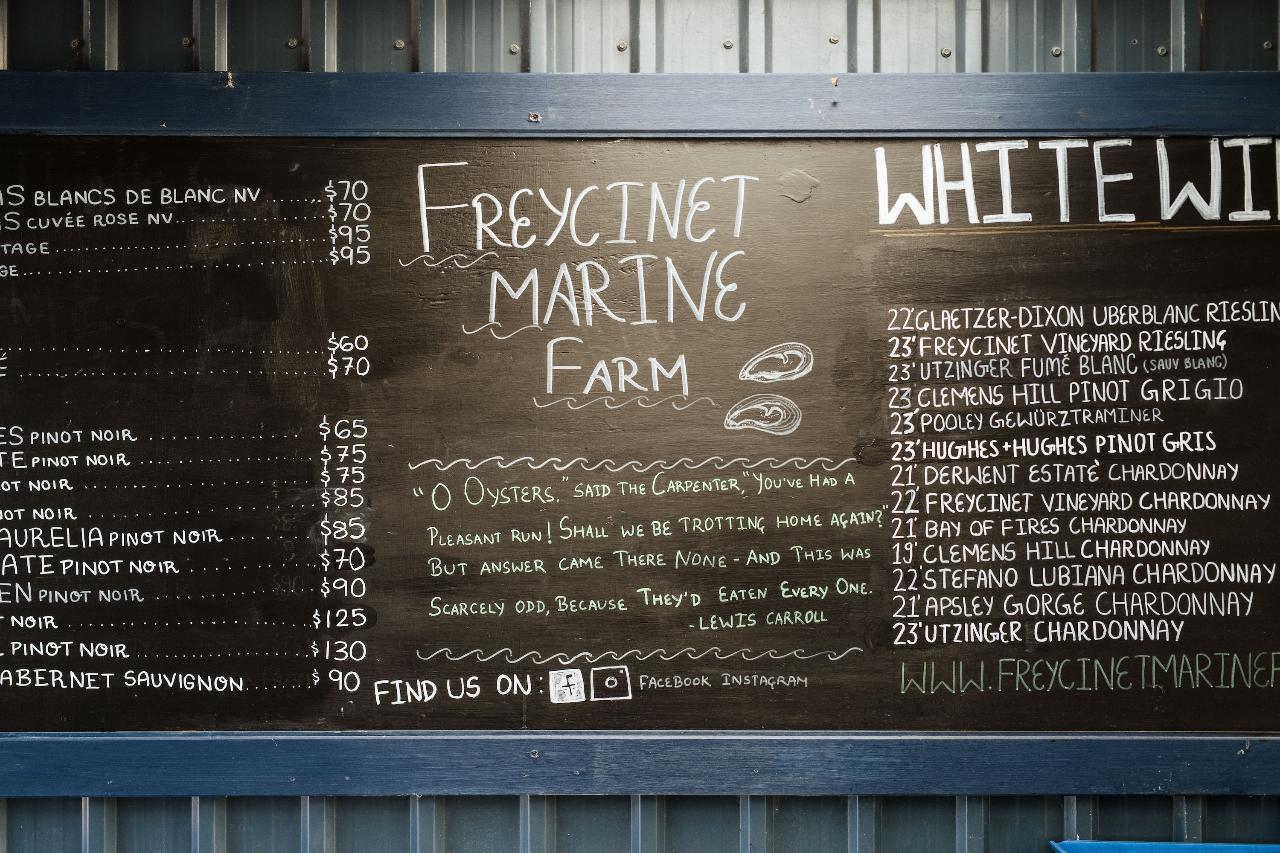 BLANCS DE BLANC NV ...... $70
CUVÉE ROSE NV ...... $70
...... $95
...... $95
...... $60
...... $70
PINOT NOIR ...... $65
PINOT NOIR ...... $75
NOIR ...... $75
NOIR ...... $85
AURELIA PINOT NOIR ...... $85
PINOT NOIR ...... $70
PINOT NOIR ...... $90
NOIR ...... $125
PINOT NOIR ...... $130
SAUVIGNON ...... $90
FREYCINET
MARINE
FARM
"O OYSTERS," SAID THE CARPENTER, "YOU'VE HAD A
PLEASANT RUN! SHALL WE BE TROTTING HOME AGAIN?"
BUT ANSWER CAME THERE NONE - AND THIS WAS
SCARCELY ODD, BECAUSE THEY'D EATEN EVERY ONE.
- LEWIS CARROLL
FIND US ON: f FACEBOOK INSTAGRAM
WHITE WI
22' GLAETZER-DIXON UBERBLANC RIESLIN
23' FREYCINET VINEYARD RIESLING
23' UTZINGER FUMÉ BLANC (SAUV BLANC)
23' CLEMENS HILL PINOT GRIGIO
23' POOLEY GEWÜRZTRAMINER
23' HUGHES+HUGHES PINOT GRIS
21' DERWENT ESTATE CHARDONNAY
22' FREYCINET VINEYARD CHARDONNAY
21' BAY OF FIRES CHARDONNAY
19' CLEMENS HILL CHARDONNAY
22' STEFANO LUBIANA CHARDONNAY
21' APSLEY GORGE CHARDONNAY
23' UTZINGER CHARDONNAY
WWW.FREYCINETMARINEF